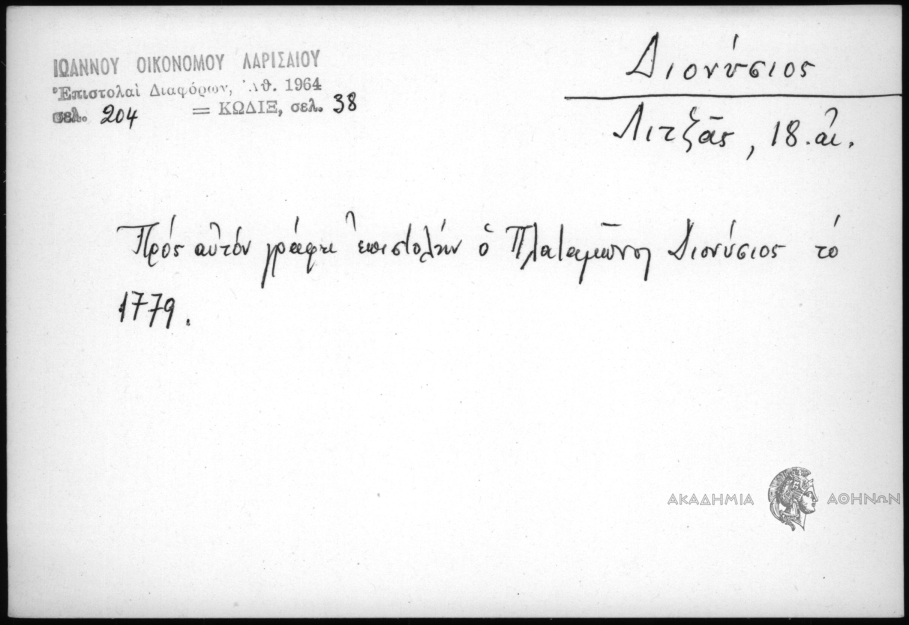 ΙΩΑΝΝΟΥ ΟΙΚΟΝΟΜΟΥ ΛΑΡΙΣΑΙΟΥ
Ἐπιστολαὶ Διαφόρων, Ἀθ. 1964
σελ. 204 = ΚΩΔΙΞ, σελ. 38
Διονύσιος
Λιτζᾶς, 18. αἰ.
Πρός αὐτόν γράφει ἐπιστολήν ὁ Πλαταμῶνος Διονύσιος τό
1779.
ΑΚΑΔΗΜΙΑ ΑΘΗΝΩΝ